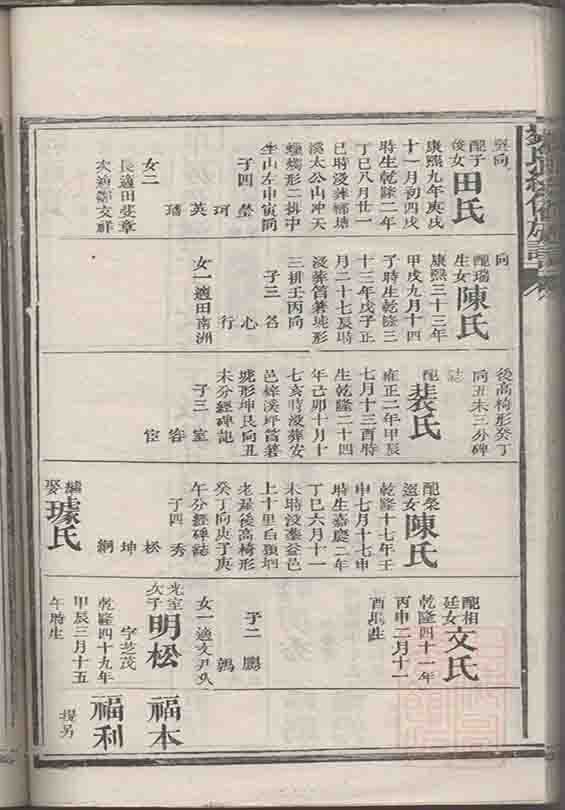 竪向
配子
後女
田氏
康熙九年庚戌
十一月初四戌
時生乾隆二年
丁巳八月廿一
巳時没葬
溪太公山冲天
形二排中
生山左申寅向
子四
瑩
珂
英
璠
女二
長適田
次適鄒文祥
向
配瑞
生女
陳氏
康熙三十三年
甲戌九月十四
子時生乾隆三
十三年戊子正
月二十七辰時
没葬筲箸坡形
三排壬丙向
子三
名
心
行
女一適田南洲
後高椅形癸丁
向丑未三分碑
誌
配
裴氏
雍正二年甲辰
七月十三酉時
生乾隆二十四
年己卯十月十
七亥時没葬安
邑梓溪坪筲箸
坡形坤艮向丑
未分經碑誌
子三
室
容
宦
配榮
選女
陳氏
乾隆十七年壬
申七月十七申
時生嘉慶二年
丁巳六月十一
未時没葬益邑
上十里白鶴坭
老屋後高椅形
癸丁向庚子庚
午分經碑誌
子四
秀
松
坤
綱
繼
娶
璩氏
配相
廷女
文氏
乾隆四十一年
丙申二月十一
酉時生
子二
鵬
鶚
女一適文尹
光室
次子
明松
字芝茂
乾隆四十九年
甲辰三月十五
午時生
福本
福利
提另